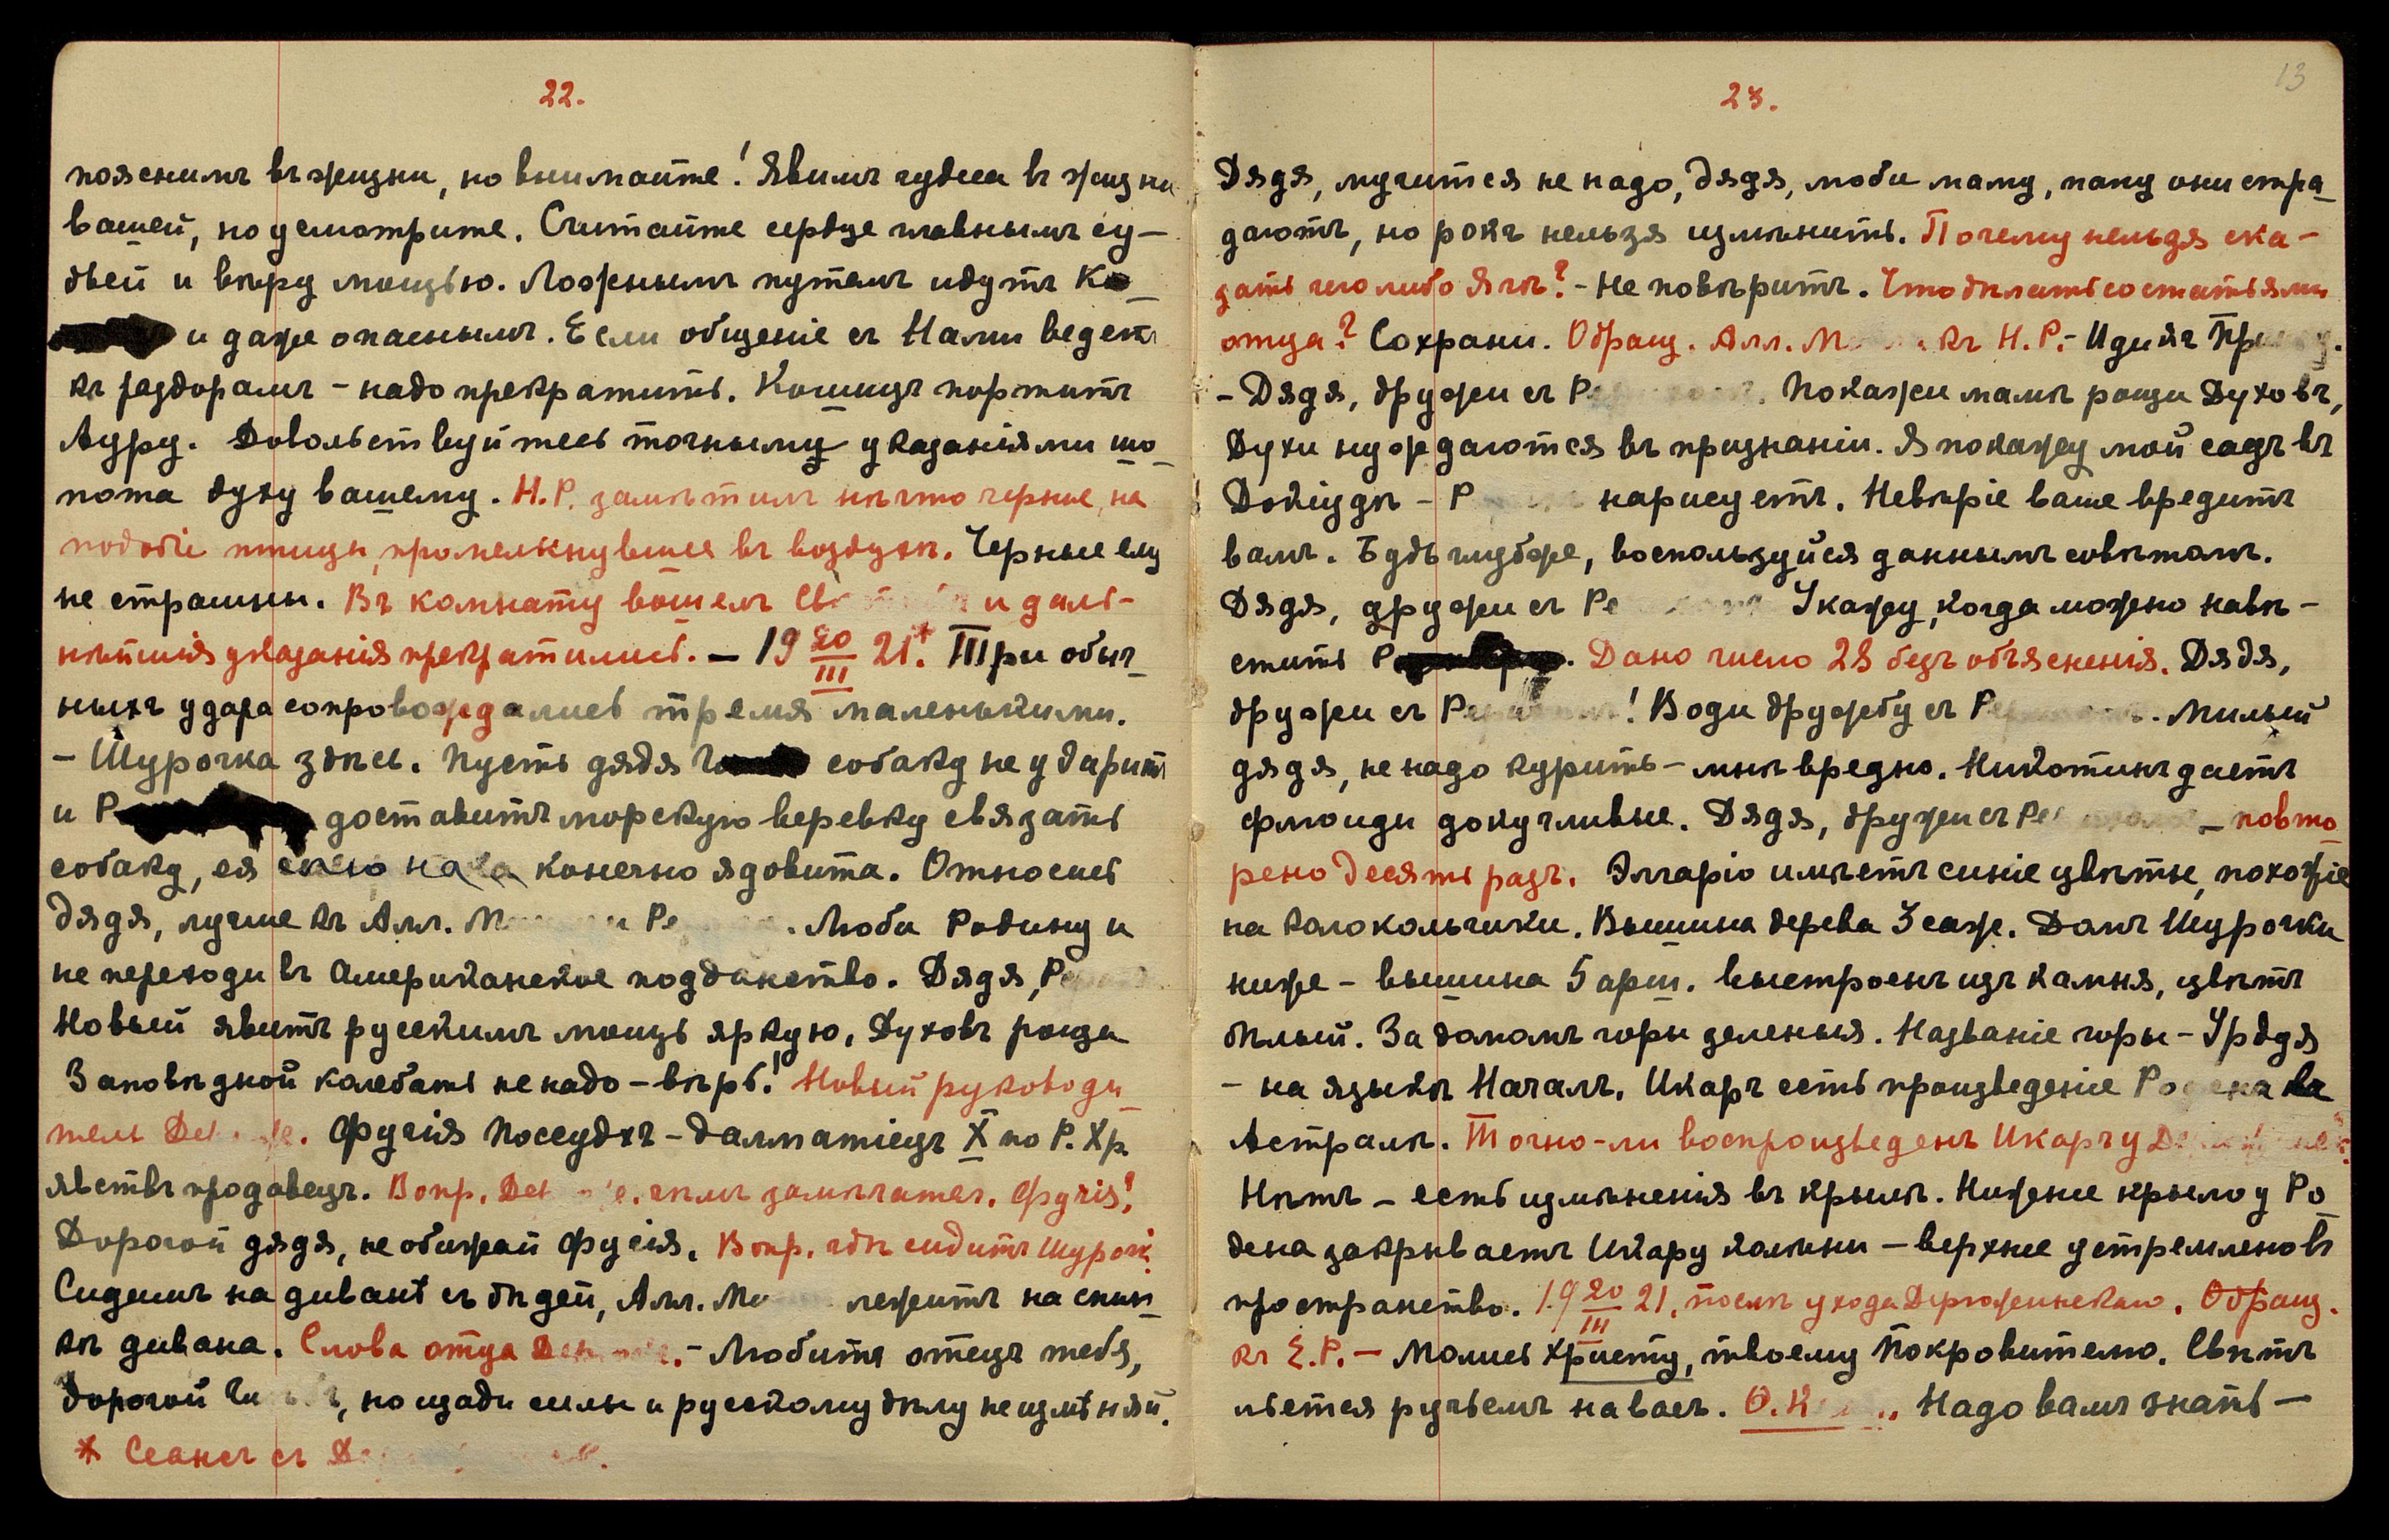 22.
пояснимъ въ жизни, но внимайте! Явимъ чудеса въ жизни
вашей, но усмотрите. Считайте сердце главнымъ су-
дьей и вѣру мощью. Ложнымъ путемъ идутъ
и даже опаснымъ. Если общеніе съ Нами ведетъ
къ раздорамъ - надо прекратить. Кошицъ портитъ
Ауру. Довольствуйтесь точными указаніями шо-
пота духу вашему. Н.Р. замѣтилъ нѣчто черное, на
подобіе птицы, промелькнувшее въ воздухѣ. Черные ему
не страшны. Въ комнату вошелъ и даль-
нѣйшія указанія прекратились. — 19 20/III 21.* Три обыч-
ныхъ удара сопровождались тремя маленькими.
- Шурочка здѣсь. Пусть дядя собаку не ударитъ
и Р доставитъ морскую веревку связать
собаку, ея конечно ядовита. Относись
дядя, лучше къ Алл. М и Ре . Люби Родину и
не переходи въ Американское подданство. Дядя,
Новый явитъ русскимъ мощь яркую, Духовъ роща
Заповѣдной колебать не надо - вѣрь! Новый руководи-
тель . Фугія Посеудхъ - далматіецъ X по Р. Хр.
яствъ продавецъ. Вопр. чѣмъ замѣчател. Фугія?
Дорогой дядя, не обижай Фугія. Вопр. гдѣ сидитъ Шуроч.?
Сидимъ на диванѣ съ бѣдей, Алл. М лежитъ на спин-
кѣ дивана. Слова отца .- Любитъ отецъ тебя,
дорогой , но щади силы и русскому дѣлу не измѣняй.
* Сеансъ съ
23.
13
Дядя, мучится не надо, дядя, люби маму, папу они стра-
даютъ, но рокъ нельзя измѣнить. Почему нельзя ска-
зать чего либо Ягѣ? - Не повѣритъ. Что дѣлать со статьями
отца? Сохрани. Обращ. Алл. М къ Н.Р.- Идый
- Дядя, дружи съ Ре . Покажи мамѣ рощи Духовъ,
Духи нуждаются въ признаніи. Я покажу мой садъ въ
Докіудѣ - Р нарисуетъ. Невѣріе ваше вредитъ
вамъ. Будь глубже, воспользуйся даннымъ совѣтомъ.
Дядя, дружи съ Ре Укажу, когда можно навѣ-
стить Р . Дано число 28 безъ объясненія. Дядя,
дружи съ Ре ! Води дружбу съ Ре . Милый
дядя, не надо курить - мнѣ вредно. Никотинъ даетъ
флюиды докучливые. Дядя, дружи съ Ре - повто-
рено десять разъ. Эллгаріо имѣетъ синіе цвѣты, похожіе
на колокольчики. Вышина дерева 3 саж. Домъ Шурочки
ниже - вышина 5 арш. выстроенъ изъ камня, цвѣтъ
бѣлый. За домомъ горы зеленыя. Названіе горы - Урддя
- на языкѣ Началъ. Икаръ есть произведеніе Родена въ
Астралѣ. Точно-ли воспроизведенъ Икаръ у
Нѣтъ - есть измѣненія въ крылѣ. Нижнее крыло у Ро-
дена закрываетъ Икару колѣни - верхнее устремлено въ
пространство. 19 20/III 21. послѣ ухода Держинскаго. Обращ.
къ Е.Р.- Молись Христу, твоему Покровителю. Свѣтъ
льется ручьемъ на васъ. О.К Надо вамъ знать -